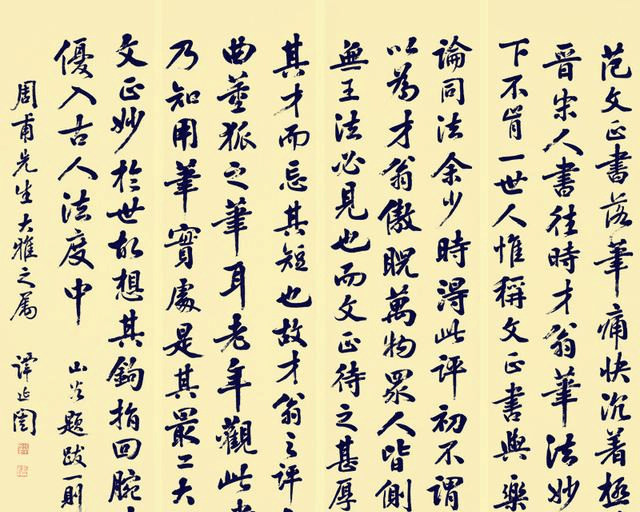 范文正書落筆痛快沉着極
晉宋人書往時才翁筆法妙
下不肯一世人惟稱文正書與樂
論同法余少時得此評初不謂
以為才翁傲睨萬物眾人皆側
無王法必見也而文正待之甚厚
其才而忘其短也故才翁之評
曲董狐之筆耳老年觀此
乃知用筆實處是其最工大
文正妙於世故想其鈎指回腕
優入古人法度中 山谷題跋一則
周甫先生大雅之屬 譚延闓